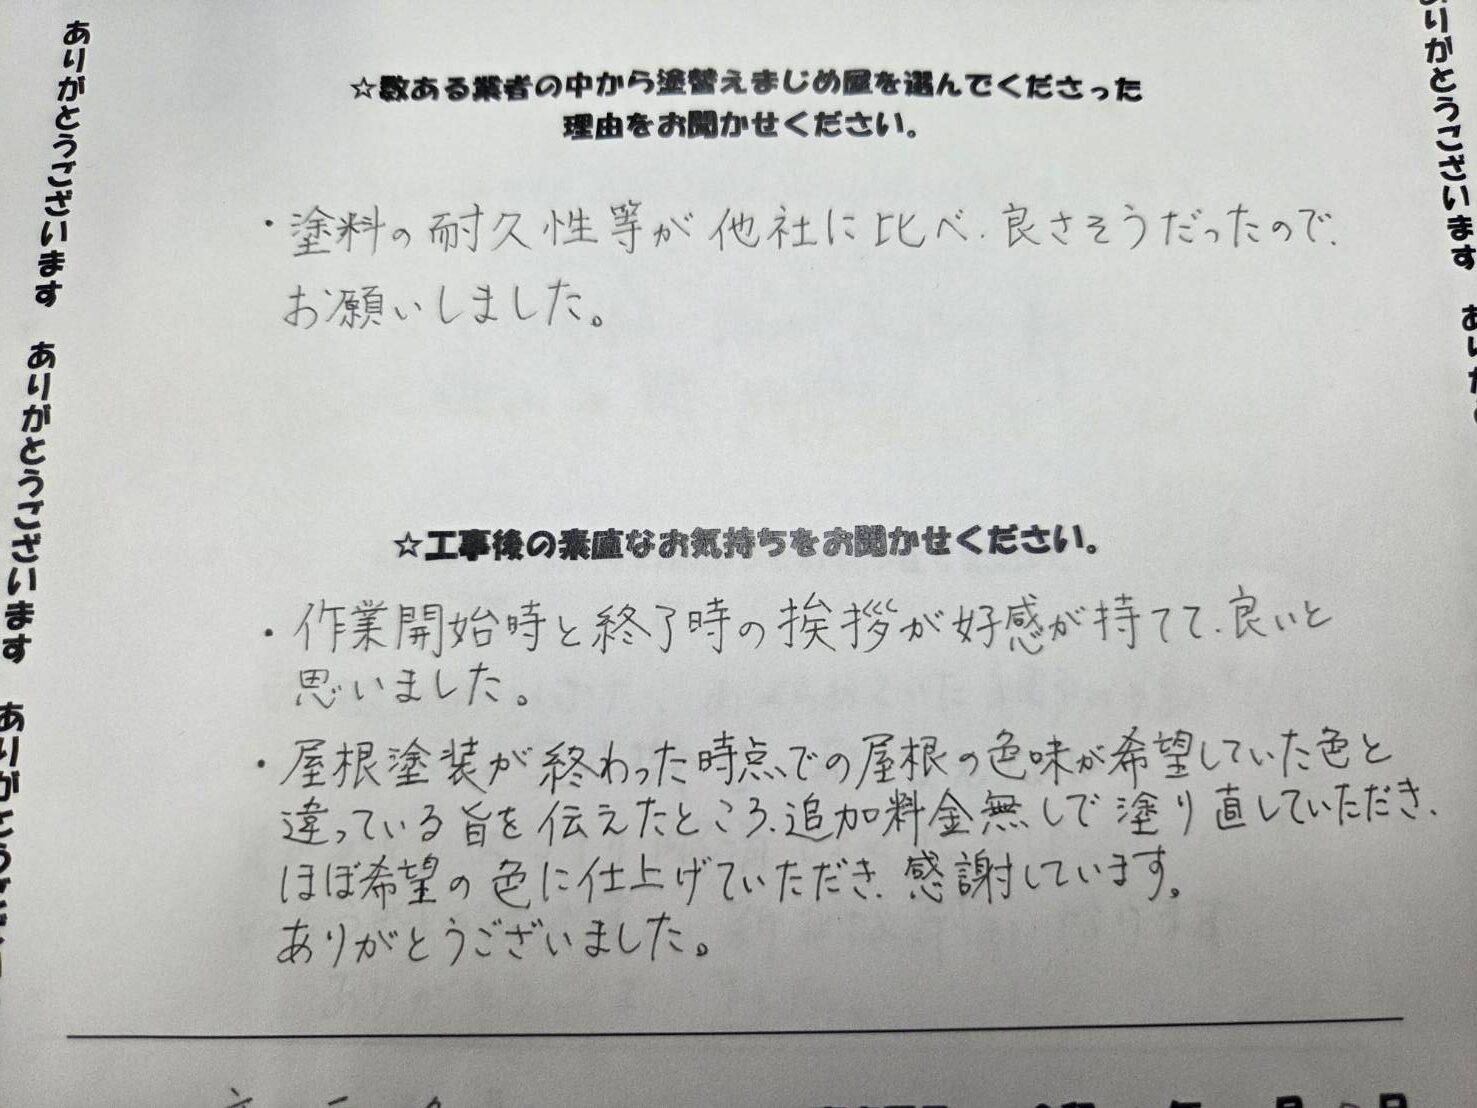 ☆数ある業者の中から塗替えまじめ屋を選んでくださった
理由をお聞かせください。
・塗料の耐久性等が他社に比べ、良さそうだったので、
お願いしました。
☆工事後の素直なお気持ちをお聞かせください。
・作業開始時と終了時の挨拶が好感が持てて、良いと
思いました。
・屋根塗装が終わった時点での屋根の色味が希望していた色と
違っている旨を伝えたところ、追加料金無しで塗り直していただき、
ほぼ希望の色に仕上げていただき、感謝しています。
ありがとうございました。
ありがとうございます ありがとうございます ありがとうござ
ありがとうございます